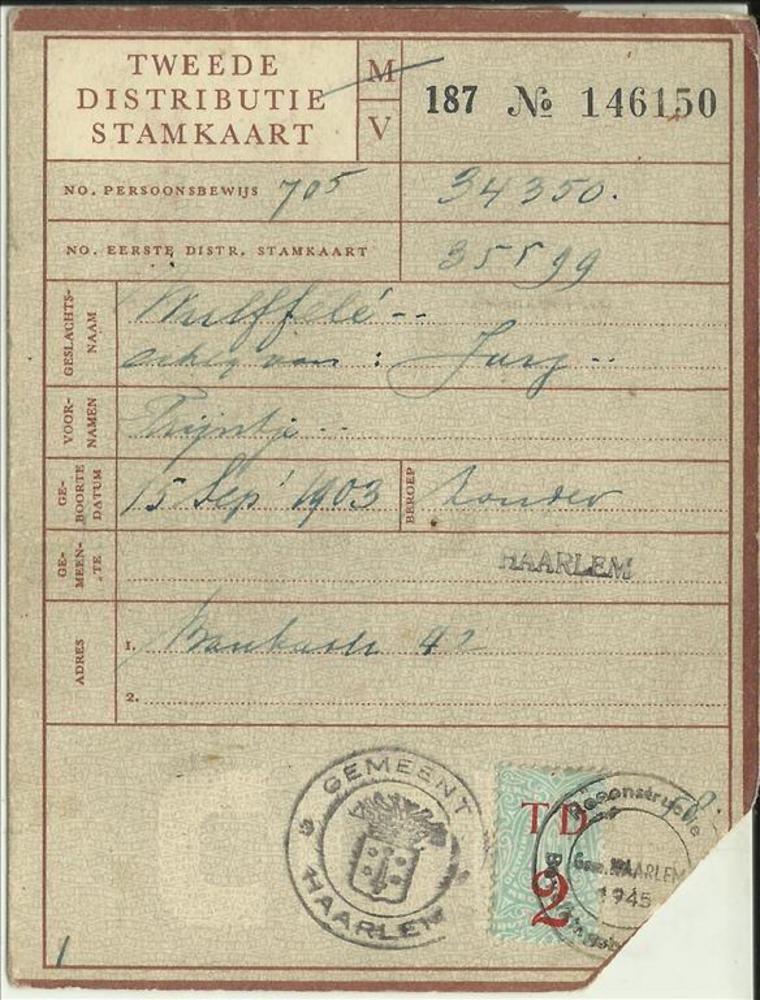 TWEEDE
DISTRIBUTIE
STAMKAART
M
V
187 № 146150
NO. PERSOONSBEWIJS 705 34350.
NO. EERSTE DISTR. STAMKAART 355 99
GESLACHTS-
NAAM
Wulffelé --
: Jurg --
VOOR-
NAMEN
Trijntje --
GE-
BOORTE
DATUM
15 Sep' 1903
BEROEP
Zonder
GE-
MEEN-
TE
HAARLEM
ADRES
1. 42
2.
GEMEENT
HAARLEM
TD
2
Gem. HAARLEM
1945